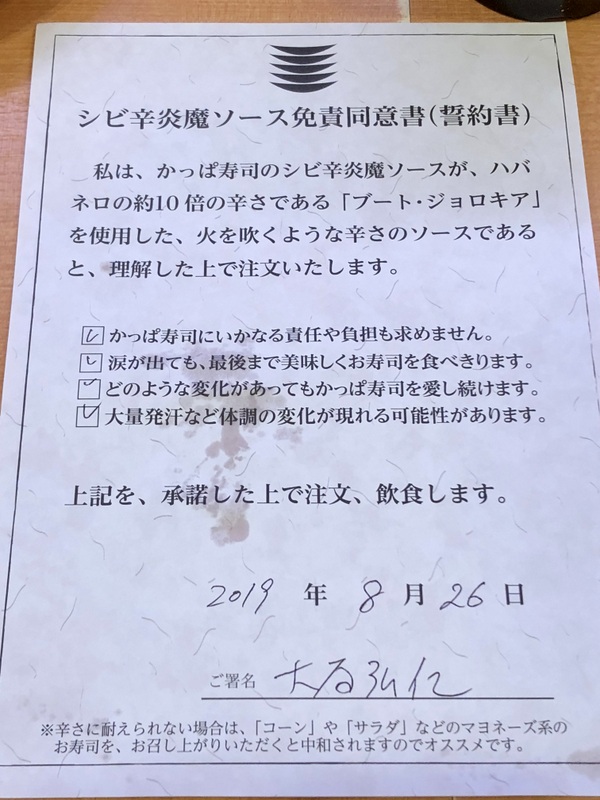 シビ辛炎魔ソース免責同意書(誓約書)
私は、かっぱ寿司のシビ辛炎魔ソースが、ハバ
ネロの約10倍の辛さである「ブート・ジョロキア」
を使用した、火を吹くような辛さのソースである
と、理解した上で注文いたします。
かっぱ寿司にいかなる責任や負担も求めません。
涙が出ても、最後まで美味しくお寿司を食べきります。
どのような変化があってもかっぱ寿司を愛し続けます。
大量発汗など体調の変化が現れる可能性があります。
上記を、承諾した上で注文、飲食します。
2019 年 8 月 26 日
ご署名 大石弘仁
※辛さに耐えられない場合は、「コーン」や「サラダ」などのマヨネーズ系の
お寿司を、お召し上がりいただくと中和されますのでオススメです。